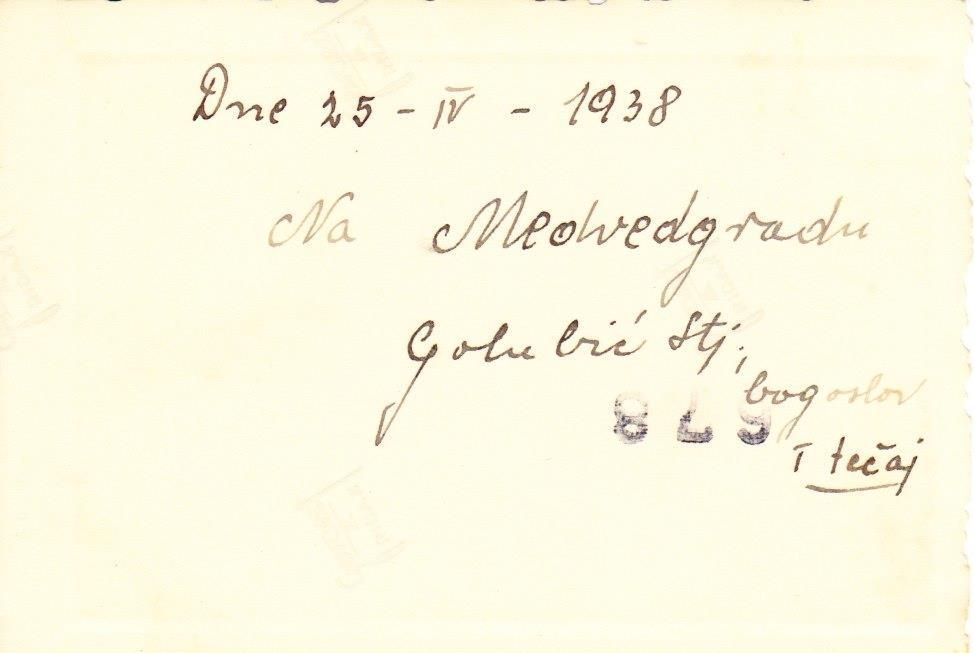 Dne 25 - IV - 1938
Na Medvedgradu
Golubić Stj.,
bogoslov
679
I tečaj